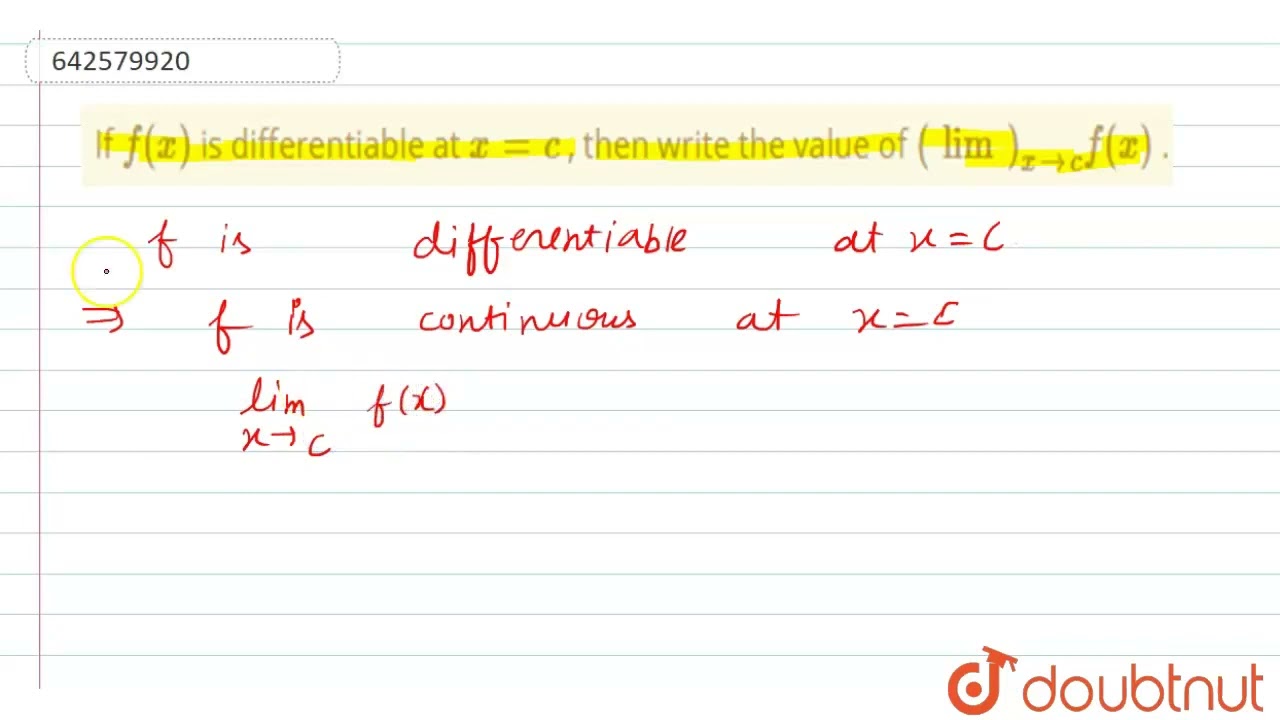 642579920
If f(x) is differentiable at x = c, then write the value of ( lim )ₓ→c f(x) .
f is differentiable at x = C
⇒ f is continuous at x = C
lim f(x)
x→C
doubtnut